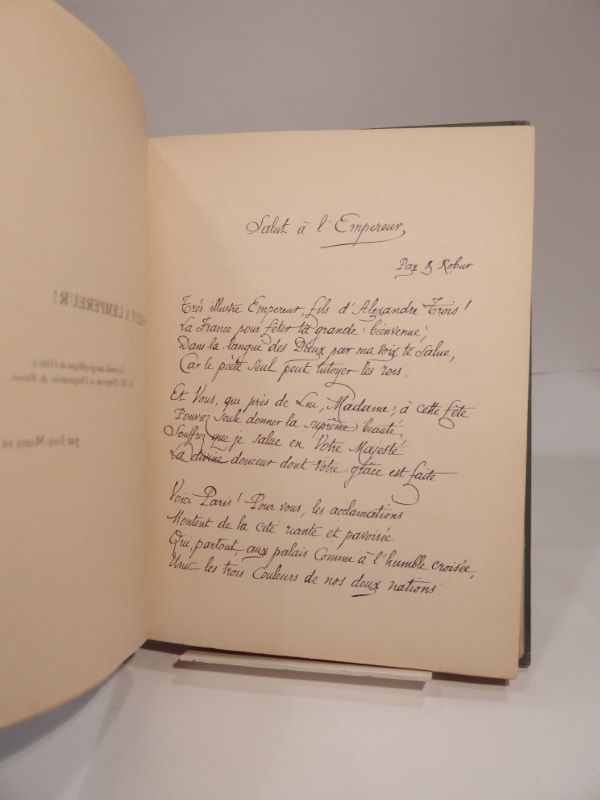 Salut à l'Empereur
Pax & Robur
Très illustre Empereur, fils d'Alexandre Trois !
La France pour fêter ta grande bienvenue
Dans la langue des Dieux par ma voix te salue,
Car le poète seul peut tutoyer les rois.
Et Vous, que près de Lui, Madame, à cette fête
Pouvez seule donner la suprême beauté,
Souffrez que je salue en Votre Majesté
La divine douceur dont Votre grâce est faite
Voici Paris ! Pour vous, les acclamations
Montent de la cité riante et pavoisée
Qui, partout, aux palais Comme à l'humble croisée,
Unit les trois Couleurs de nos deux nations.